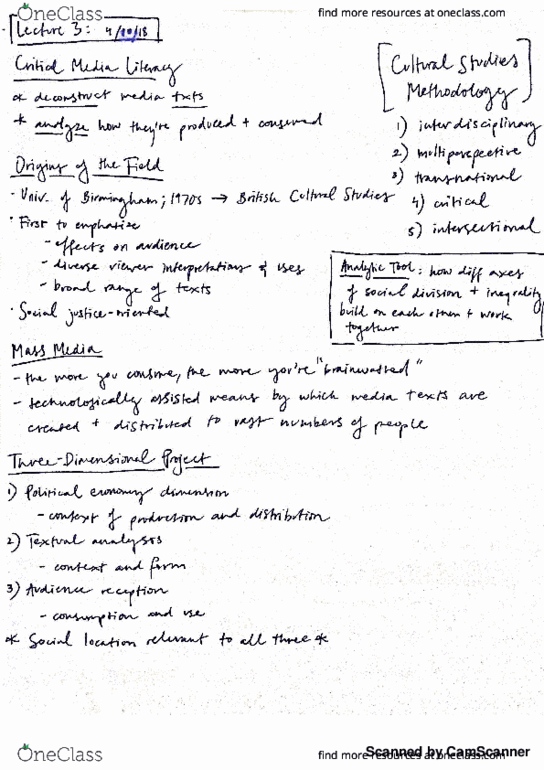 OneClass
find more resources at oneclass.com
Lecture 3: 4/10/18
Critical Media Literacy
* deconstruct media txts
* analyze how they're produced + consumed
[Cultural Studies
Methodology]
1) interdisciplinary
2) multiperspective
3) transnational
4) critical
5) intersectional
Analytic Tool: how diff axes
of social division + inequality
build on each other + work
together
Origins of the Field
· Univ. of Birmingham; 1970s → British Cultural Studies
· First to emphasize
- effects on audience
- diverse viewer interpretations & uses
- broad range of texts
· Social justice-oriented
Mass Media
- the more you consume, the more you're "brainwashed"
- technologically assisted means by which media texts are
created + distributed to vast numbers of people
Three-Dimensional Project
1) Political economy dimension
- context of production and distribution
2) Textual analysis
- context and form
3) Audience reception
- consumption and use
* Social location relevant to all three *
OneClass
find more resources at oneclass.com
Scanned by CamScanner